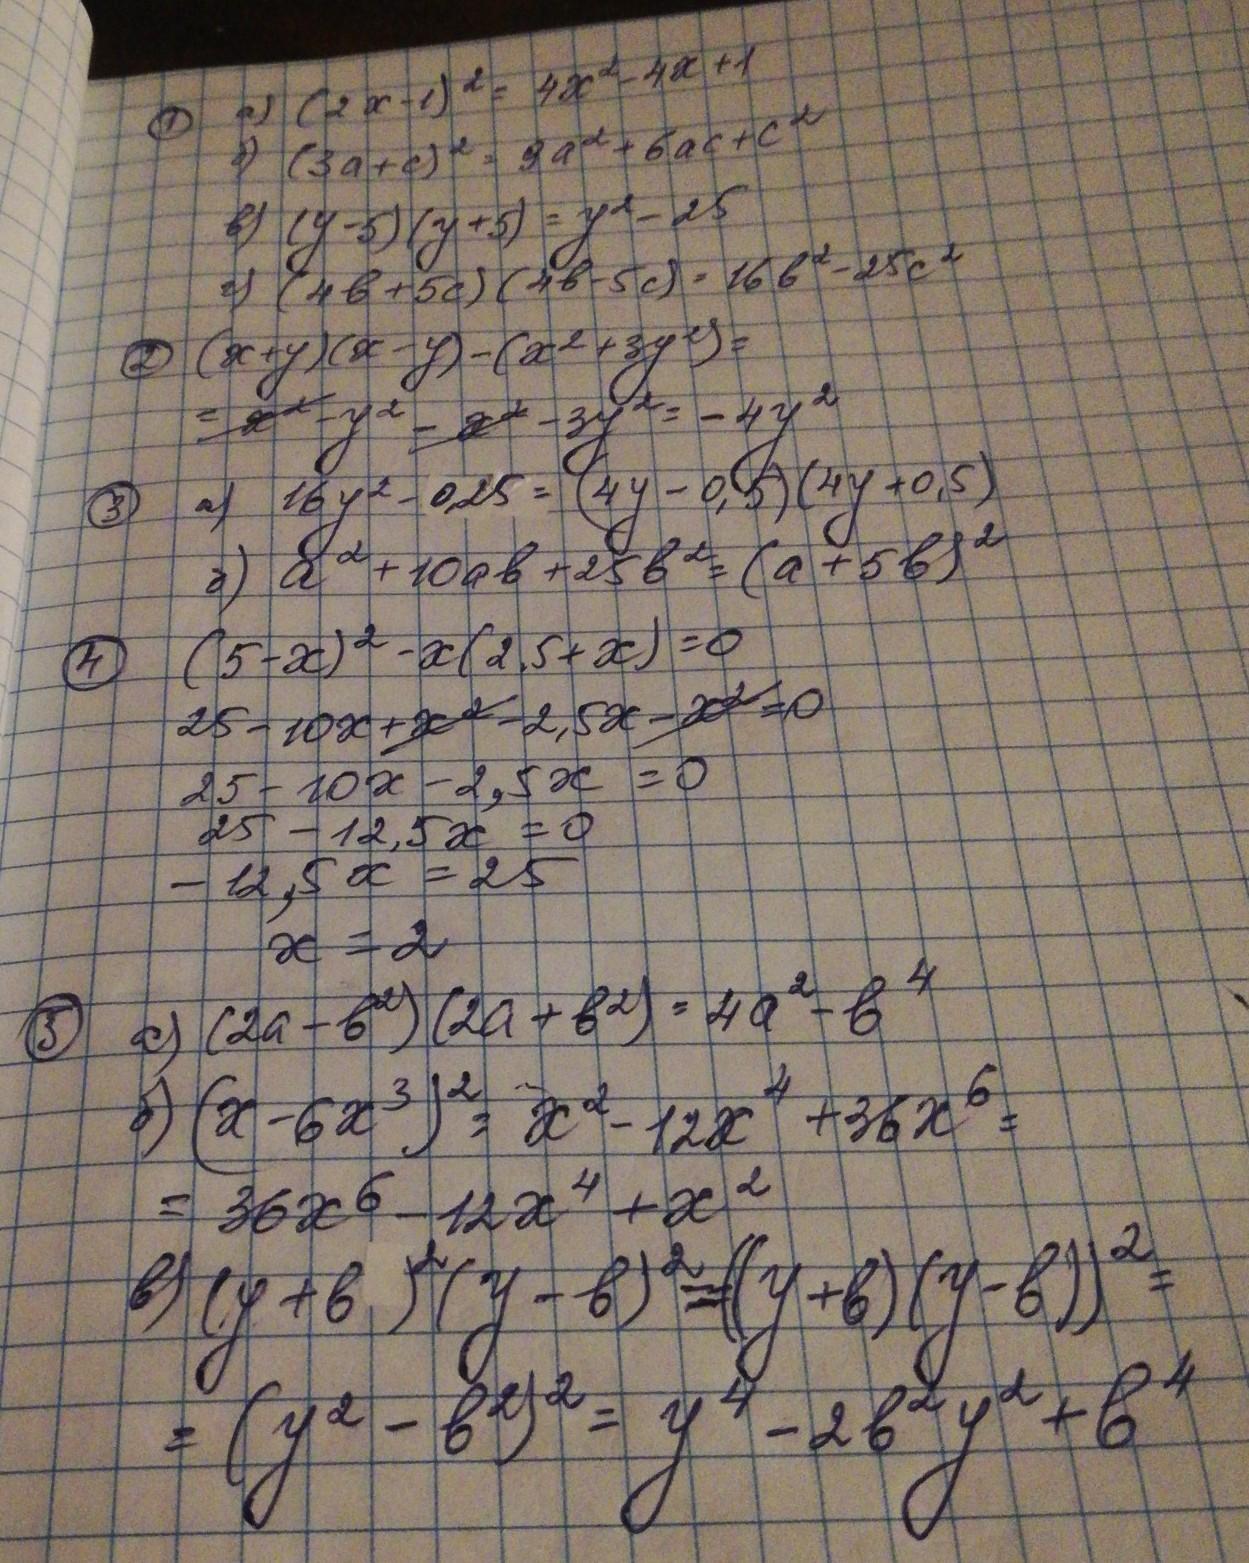 ① а) (2x-1)² = 4x² - 4x + 1
б) (3a+c)² = 9a² + 6ac + c²
в) (y-5)(y+5) = y² - 25
г) (4b+5c)(4b-5c) = 16b² - 25c²
② (x+y)(x-y) - (x²+3y²) =
= x² - y² - x² - 3y² = -4y²
③ а) 16y² - 0,25 = (4y-0,5)(4y+0,5)
б) a² + 10ab + 25b² = (a+5b)²
④ (5-x)² - x(2,5+x) = 0
25 - 10x + x² - 2,5x - x² = 0
25 - 10x - 2,5x = 0
25 - 12,5x = 0
- 12,5x = 25
x = 2
⑤ а) (2a-b²)(2a+b²) = 4a² - b⁴
б) (x-6x³)² = x² - 12x⁴ + 36x⁶ =
= 36x⁶ - 12x⁴ + x²
в) (y+b)²(y-b)² = ((y+b)(y-b))² =
= (y² - b²)² = y⁴ - 2b²y² + b⁴